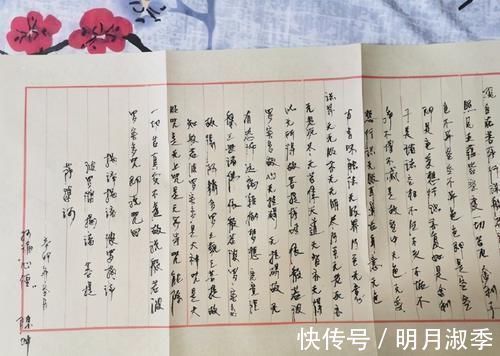 观自在菩萨行深般若
照见五蕴皆空度一切苦厄舍利
色不异空空不异色色即是空空
即是色受想行识亦复如是舍利
子是诸法空相不生不灭不垢不
净不增不减是故空中无色无受
想行识无眼耳鼻舌身意无色
声香味触法无眼界乃至无意
识界无无明亦无无明尽乃至无老死亦
无老死尽无苦集灭道无智亦无得
以无所得故菩提萨埵依般若波
罗蜜多故心无挂碍无挂碍故无
有恐怖远离颠倒梦想究竟涅
槃三世诸佛依般若波罗蜜多
故得阿耨多罗三藐三菩提故
知般若波罗蜜多是大神咒是大
明咒是无上咒是无等等咒能除
一切苦真实不虚故说般若波
罗蜜多咒即说咒曰
揭谛揭谛 波罗揭谛
波罗僧揭谛 菩提
萨婆诃
癸卯年
心经
陈坤
快传号/明月淑季